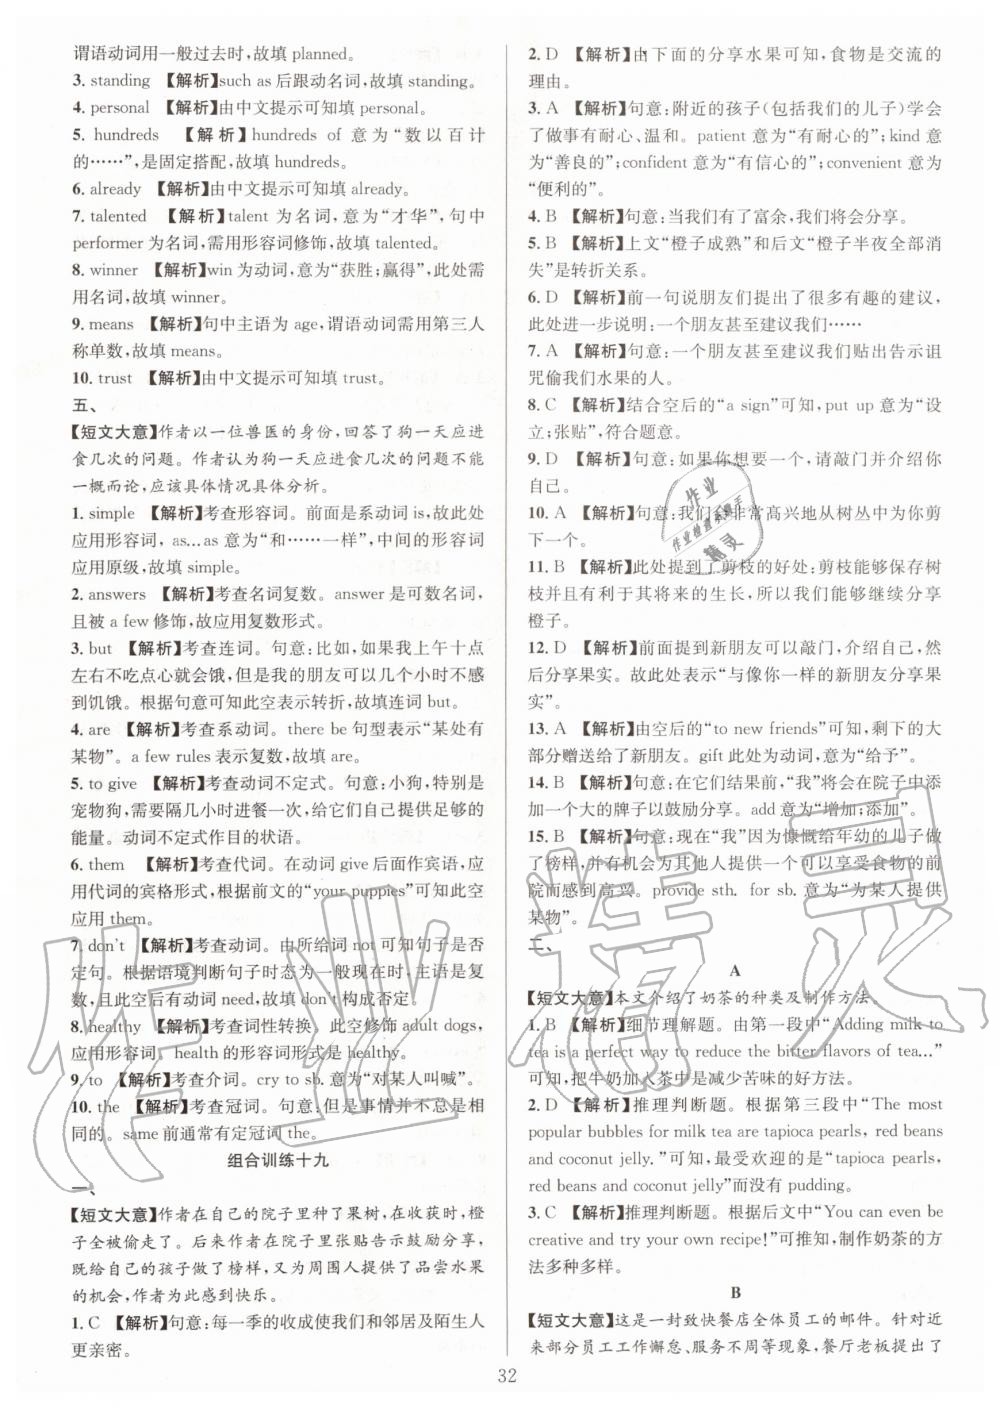 谓语动词用一般过去时,故填 planned。
3. standing 【解析】such as 后跟动名词,故填 standing。
4. personal 【解析】由中文提示可知填 personal。
5. hundreds 【解析】hundreds of 意为“数以百计
的……”,是固定搭配,故填 hundreds。
6. already 【解析】由中文提示可知填 already。
7. talented 【解析】talent 为名词,意为“才华”,句中
performer 为名词,需用形容词修饰,故填 talented。
8. winner 【解析】win 为动词,意为“获胜;赢得”,此处需
用名词,故填 winner。
9. means 【解析】句中主语为 age,谓语动词需用第三人
称单数,故填 means。
10. trust 【解析】由中文提示可知填 trust。
五、
【短文大意】作者以一位兽医的身份,回答了狗一天应进
食几次的问题。作者认为狗一天应进食几次的问题不能
一概而论,应该具体情况具体分析。
1. simple 【解析】考查形容词。前面是系动词 is,故此处
应用形容词,as...as 意为“和……一样”,中间的形容词
应用原级,故填 simple。
2. answers 【解析】考查名词复数。answer 是可数名词,
且被 a few 修饰,故应用复数形式。
3. but 【解析】考查连词。句意:比如,如果我上午十点
左右不吃点心就会饿,但是我的朋友可以几个小时不感
到饥饿。根据句意可知此空表示转折,故填连词 but。
4. are 【解析】考查系动词。there be 句型表示“某处有
某物”。a few rules 表示复数,故填 are。
5. to give 【解析】考查动词不定式。句意:小狗,特别是
宠物狗,需要隔几小时进餐一次,给它们自己提供足够的
能量。动词不定式作目的状语。
6. them 【解析】考查代词。在动词 give 后面作宾语,应
用代词的宾格形式,根据前文的“your puppies”可知此空
应用 them。
7. don't 【解析】考查动词。由所给词 not 可知句子是否
定句。根据语境判断句子时态为一般现在时,主语是复
数,且此空后有动词 need,故填 don't 构成否定。
8. healthy 【解析】考查词性转换。此空修饰 adult dogs,
应用形容词。health 的形容词形式是 healthy。
9. to 【解析】考查介词。cry to sb. 意为“对某人叫喊”。
10. the 【解析】考查冠词。句意:但是事情并不总是相
同的。same 前通常有定冠词 the。
组合训练十九
一、
【短文大意】作者在自己的院子里种了果树,在收获时,橙
子全被偷走了。后来作者在院子里张贴告示鼓励分享,
既给自己的孩子做了榜样,又为周围人提供了品尝水果
的机会,作者为此感到快乐。
1. C 【解析】句意:每一季的收成使我们和邻居及陌生人
更亲密。
2. D 【解析】由下面的分享水果可知,食物是交流的
理由。
3. A 【解析】句意:附近的孩子(包括我们的儿子)学会
了做事有耐心、温和。patient 意为“有耐心的”;kind 意
为“善良的”;confident 意为“有信心的”;convenient 意为
“便利的”。
4. B 【解析】句意:当我们有了富余,我们将会分享。
5. B 【解析】上文“橙子成熟”和后文“橙子半夜全部消
失”是转折关系。
6. D 【解析】前一句说朋友们提出了很多有趣的建议,
此处进一步说明:一个朋友甚至建议我们……
7. A 【解析】句意:一个朋友甚至建议我们贴出告示诅
咒偷我们水果的人。
8. C 【解析】结合空后的“a sign”可知,put up 意为“设
立;张贴”,符合题意。
9. D 【解析】句意:如果你想要一个,请敲门并介绍你
自己。
10. A 【解析】句意:我们非常高兴地从树丛中为你剪
下一个。
11. B 【解析】此处提到了剪枝的好处:剪枝能够保存树
枝并有利于其将来的生长,所以我们能够继续分享
橙子。
12. D 【解析】前面提到新朋友可以敲门,介绍自己,然
后分享果实。故此处表示“与像你一样的新朋友分享果
实”。
13. A 【解析】由空后的“to new friends”可知,剩下的大
部分赠送给了新朋友。gift 此处为动词,意为“给予”。
14. B 【解析】句意:在它们结果前,“我”将会在院子中添
加一个大的牌子以鼓励分享。add 意为“增加;添加”。
15. B 【解析】句意:现在“我”因为慷慨给年幼的儿子做
了榜样,并有机会为其他人提供一个可以享受食物的前
院而感到高兴。provide sth. for sb. 意为“为某人提供
某物”。
二、
A
【短文大意】本文介绍了奶茶的种类及制作方法。
1. B 【解析】细节理解题。由第一段中“Adding milk to
tea is a perfect way to reduce the bitter flavors of tea...”
可知,把牛奶加入茶中是减少苦味的好方法。
2. D 【解析】推理判断题。根据第三段中“The most
popular bubbles for milk tea are tapioca pearls, red beans
and coconut jelly.”可知,最受欢迎的是“tapioca pearls,
red beans and coconut jelly”而没有 pudding。
3. C 【解析】推理判断题。根据后文中“You can even be
creative and try your own recipe!”可推知,制作奶茶的方
法多种多样。
B
【短文大意】这是一封致快餐店全体员工的邮件。针对近
来部分员工工作懈怠、服务不周等现象,餐厅老板提出了
32
作业
作业检查小助手
精灵
作业精灵